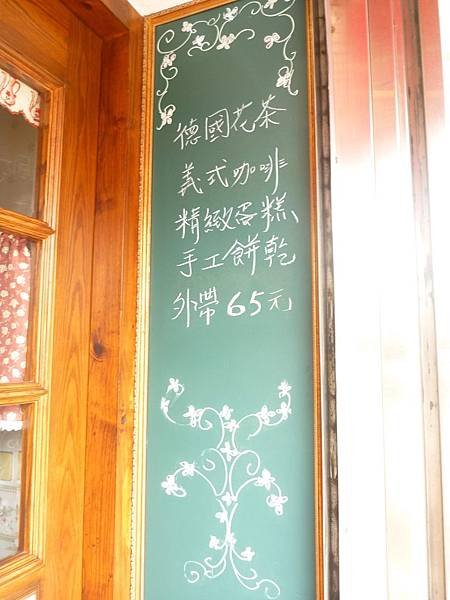 德國花茶
義式咖啡
精緻蛋糕、
手工餅乾
外帶65元